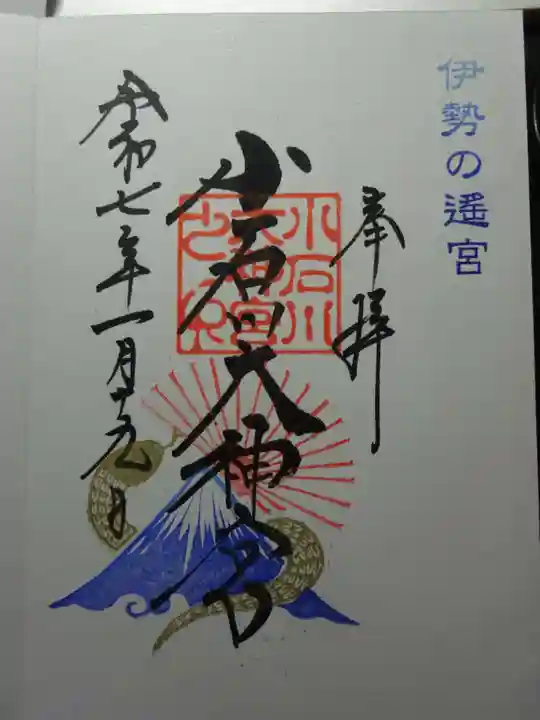 伊勢の遙宮
奉拝
小石川大神宮
小石川
大神宮
之印
令和七年一月廿九日